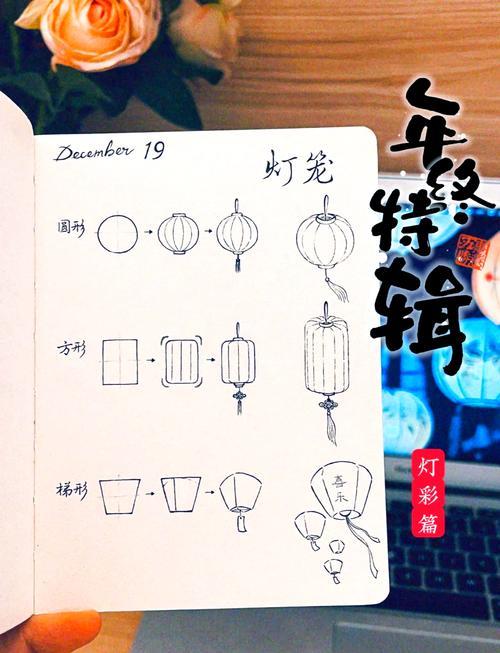 December 19
灯笼
圆形
方形
梯形
喜
乐
年终
特辑
灯
彩
篇